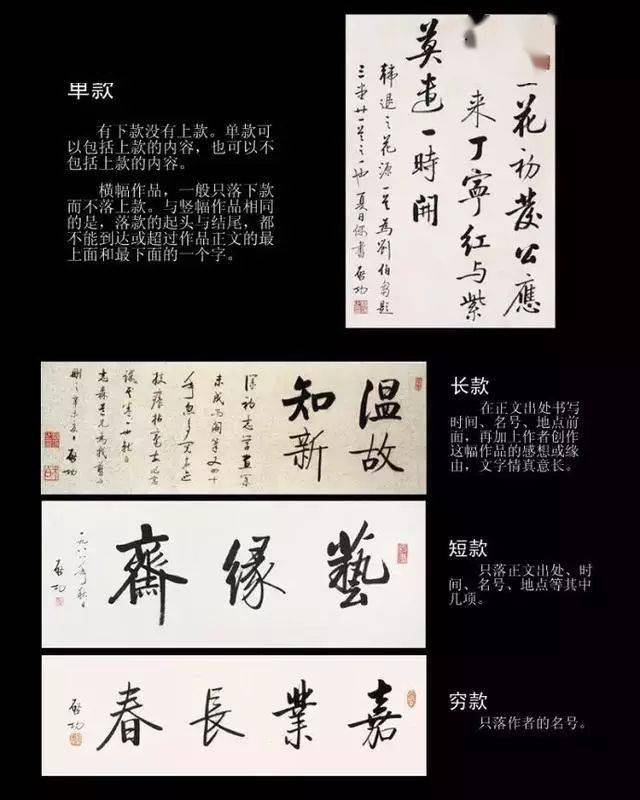 单款
有下款没有上款。单款可
以包括上款的内容，也可以不
包括上款的内容。
横幅作品，一般只落下款
而不落上款。与竖幅作品相同
的是，落款的起头与结尾，都
不能到达或超过作品正文的最
上面和最下面的一个字。
一花初發公應
来丁寧红与紫
莫遣一時開
韩退之花源一首為劉伯芻題
三堂廿一首之一也夏日偶書 啓功
温故
知新
啓功
长款
在正文出处书写
时间、名号、地点前
面，再加上作者创作
这幅作品的感想或缘
由，文字情真意长。
藝緣齋
一九八八年秋日
啓功
短款
只落正文出处、时
间、名号、地点等其中
几项。
嘉業長春
啓功
穷款
只落作者的名号。